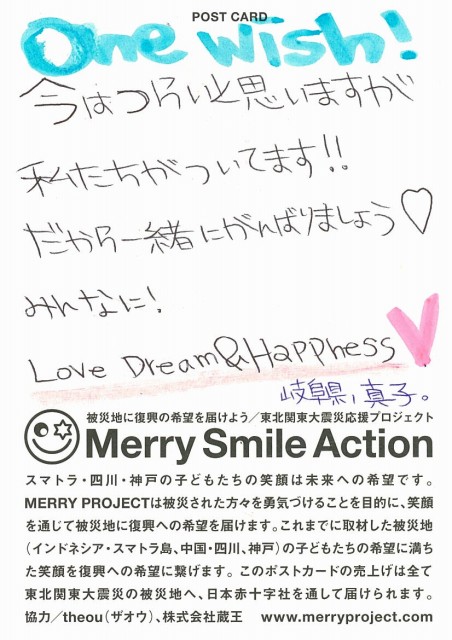 POST CARD
One wish!
今はつらいと思いますが
私たちがついてます!!
だから一緒にがんばりましょう♡
みんなに!
Love Dream&Happness
岐阜県,真子。
被災地に復興の希望を届けよう/東北関東大震災応援プロジェクト
Merry Smile Action
スマトラ・四川・神戸の子どもたちの笑顔は未来への希望です。
MERRY PROJECTは被災された方々を勇気づけることを目的に、笑顔
を通じて被災地に復興への希望を届けます。これまでに取材した被災地
(インドネシア・スマトラ島、中国・四川、神戸)の子どもたちの希望に満ち
た笑顔を復興への希望に繋げます。このポストカードの売上げは全て
東北関東大震災の被災地へ、日本赤十字社を通して届けられます。
協力/theou(ザオウ)、株式会社蔵王 www.merryproject.com